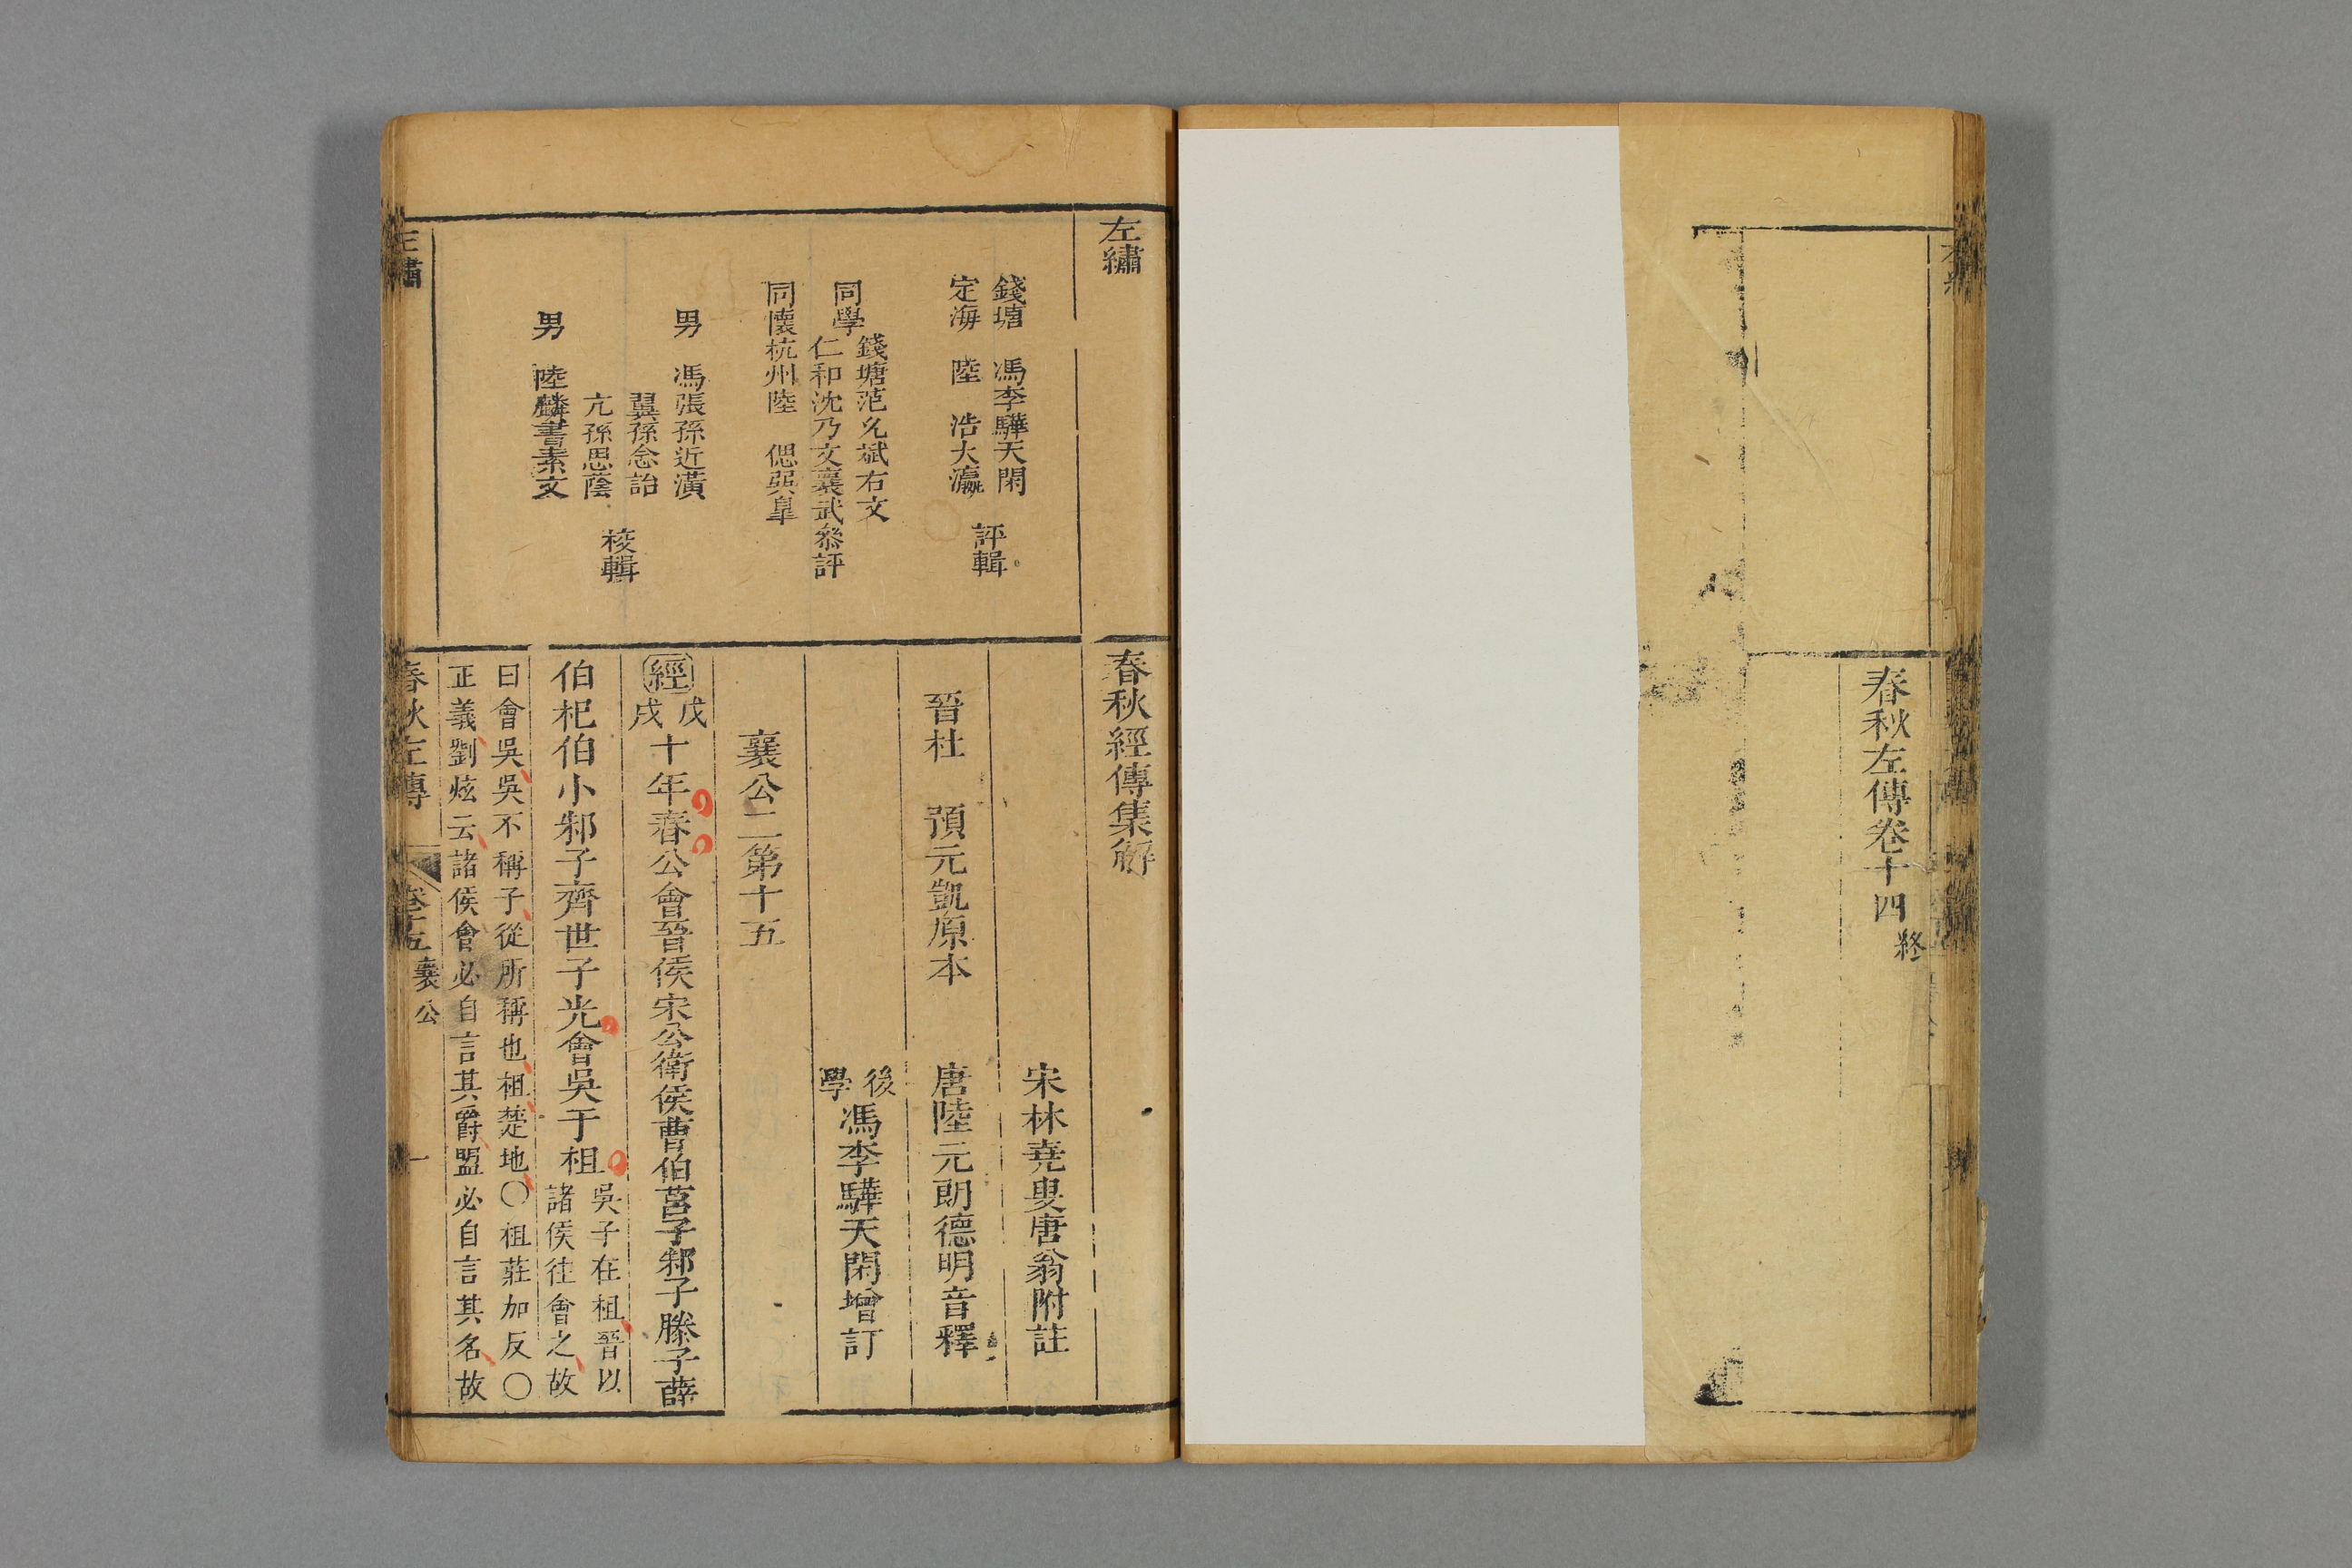 春秋左傳卷十四終
左繡
錢塘 馮李驊天閑
定海 陸 浩大瀛
評輯
同學
錢塘范允斌右文
仁和沈乃文襄武叅評
同懷杭州陸 偲巽皐
男 馮張孫近潢
翼孫念詒
亢孫思蔭
男 陸麟書素文
校輯
春秋經傳集解
宋林堯叟唐翁附註
晉杜 預元凱原本 唐陸元朗德明音釋
後學馮李驊天閑增訂
襄公二第十五
經戊戌十年春公會晉侯宋公衛侯曹伯莒子邾子滕子薛
伯杞伯小邾子齊世子光會吳于柤吳子在柤晉以
諸侯往會之故
曰會吳吳不稱子從所稱也柤楚地〇柤莊加反〇
正義劉炫云諸侯會必自言其爵盟必自言其名故
春秋左傳 卷十五 襄公 一